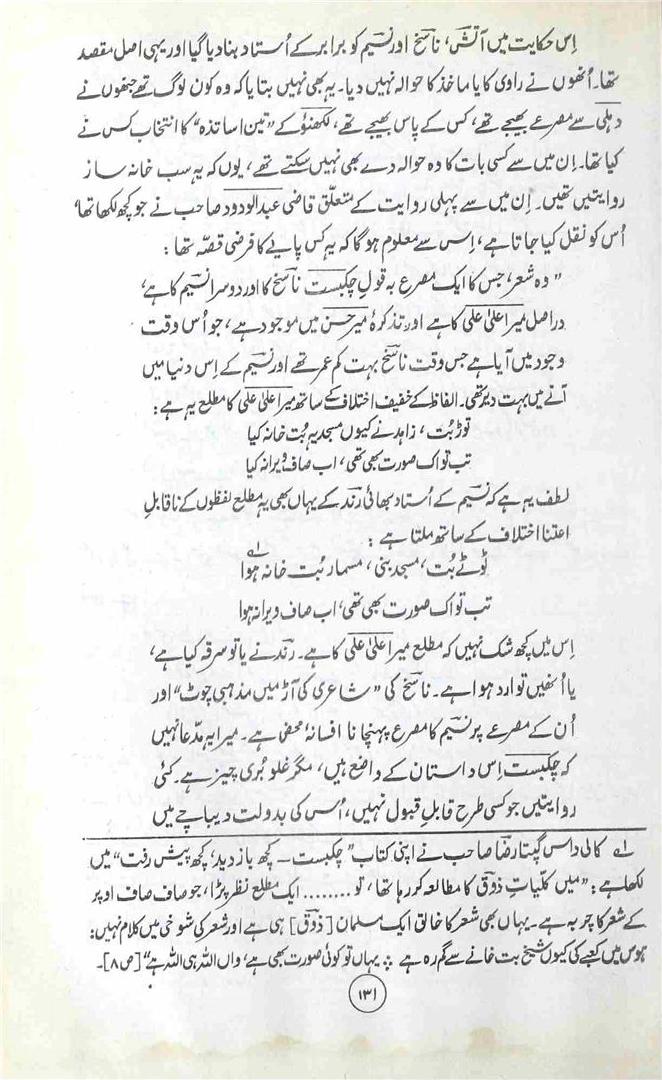 اِس حکایت میں آتش، ناسخ اور نسیم کو برابر کے اُستاد بنا دیا گیا اور یہی اصل مقصد
تھا۔ اُنھوں نے راوی کا یا ماخذ کا حوالہ نہیں دیا۔ یہ بھی نہیں بتایا کہ وہ کون لوگ تھے جنھوں نے
دہلی سے مصرعے بھیجے تھے، کس کے پاس بھیجے تھے، لکھنؤ کے "تین اساتذہ" کا انتخاب کس نے
کیا تھا۔ اِن میں سے کسی بات کا وہ حوالہ دے بھی نہیں سکتے تھے، یوں کہ یہ سب خانہ ساز
روایتیں تھیں۔ اِن میں سے پہلی روایت کے متعلّق قاضی عبدالودود صاحب نے جو کچھ لکھا تھا،
اُس کو نقل کیا جاتا ہے، اِس سے معلوم ہوگا کہ یہ کس پایے کا فرضی قصّہ تھا :
"وہ شعر، جس کا ایک مصرع بہ قولِ چکبست ناسخ کا اور دوسرا نسیم کا ہے،
دراصل میر اعلیٰ علی کا ہے اور تذکرۂ میر حسن میں موجود ہے، جو اُس وقت
وجود میں آیا ہے جس وقت ناسخ بہت کم عمر تھے اور نسیم کے اِس دنیا میں
آنے میں بہت دیر تھی۔ الفاظ کے خفیف اختلاف کے ساتھ میر اعلیٰ علی کا مطلع یہ ہے :
توڑ بُت، زاہد نے کیوں مسجد یہ بُت خانہ کیا
تب تو اک صورت بھی تھی، اب صاف ویرانہ کیا
لطف یہ ہے کہ نسیم کے اُستاد بھائی رند کے یہاں بھی یہ مطلع لفظوں کے ناقابلِ
اعتنا اختلاف کے ساتھ ملتا ہے :
ٹوٹے بُت، مسجد بنی، مسمار بُت خانہ ہوا ؎۱
تب تو اک صورت بھی تھی، اب صاف ویرانہ ہوا
اِس میں کچھ شک نہیں کہ مطلع میر اعلیٰ علی کا ہے۔ رند نے یا تو سرقہ کیا ہے،
یا اُنھیں توارد ہوا ہے۔ ناسخ کی "شاعری کی آڑ میں مذہبی چوٹ" اور
اُن کے مصرعے پر نسیم کا مصرع پہنچانا افسانۂ محض ہے۔ میرا یہ مدّعا نہیں
کہ چکبست اِس داستان کے واضع ہیں، مگر غلو بُری چیز ہے۔ کئی
روایتیں جو کسی طرح قابلِ قبول نہیں، اُس کی بدولت دیباچے میں
؎۱ کالی داس گپتا رضا صاحب نے اپنی کتاب "چکبست ـ کچھ بازدید، کچھ پیش رفت" میں
لکھا ہے : "میں کلّیاتِ ذوق کا مطالعہ کر رہا تھا، تو ........ ایک مطلع نظر پڑا، جو صاف صاف اوپر
کے شعر کا چربہ ہے۔ یہاں بھی شعر کا خالق ایک مسلمان [ذوق] ہی ہے اور شعر کی شوخی میں کلام نہیں :
ہوس میں کعبے کی کیوں شیخ بت خانے سے گم رہ ہے ؞ یہاں تو کوئی صورت بھی ہے، واں اللہ ہی اللہ ہے" [ص ۸]۔
۱۳۱